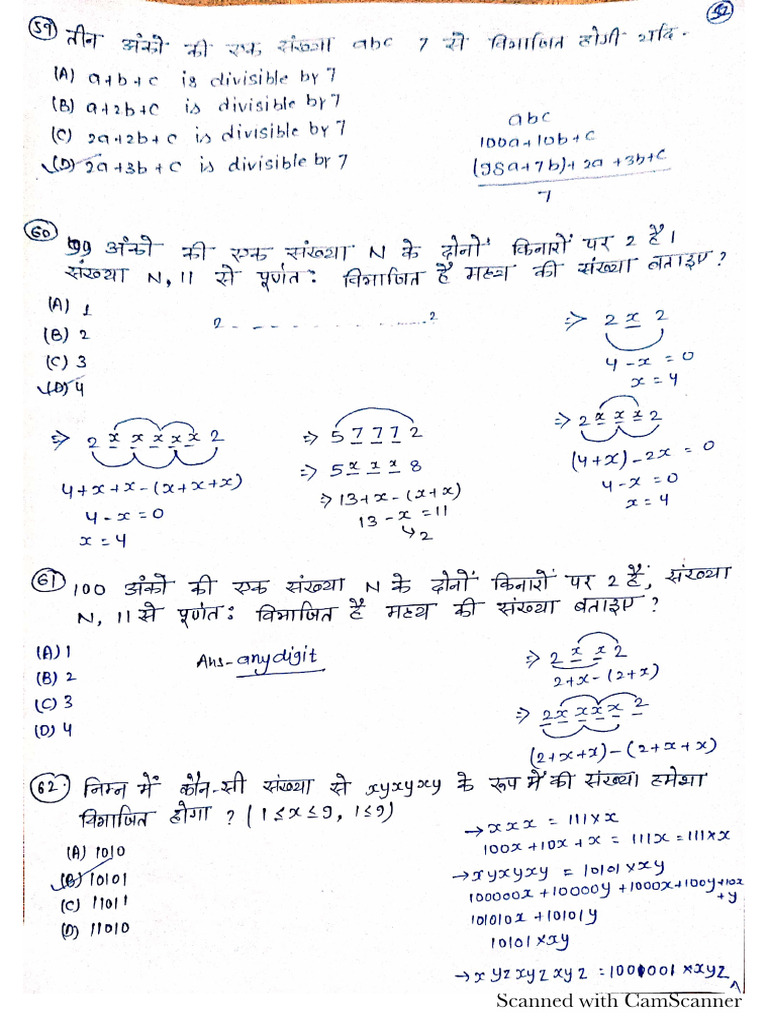 52
59 तीन अंको की एक संख्या abc 7 से विभाजित होगी यदि-
(A) a+b+c is divisible by 7
(B) a+2b+c is divisible by 7
(C) 2a+2b+c is divisible by 7
(D) 2a+3b+c is divisible by 7
abc
100a+10b+c
(98a+7b)+2a+3b+c
7
60 99 अंको की एक संख्या N के दोनों किनारों पर 2 है।
संख्या N, 11 से पूर्णतः विभाजित है मध्य की संख्या बताइए?
(A) 1
(B) 2
(C) 3
(D) 4
2 - - - - - - - ........2
=> 2 x 2
4-x=0
x=4
=> 2 x x x x x 2
4+x+x-(x+x+x)
4-x=0
x=4
=> 5 7 7 7 2
=> 5 x x x 8
=> 13+x-(x+x)
13-x=11
↳2
=> 2 x x x 2
(4+x)-2x=0
4-x=0
x=4
61 100 अंको की एक संख्या N के दोनों किनारों पर 2 है, संख्या
N, 11 से पूर्णतः विभाजित है मध्य की संख्या बताइए?
(A) 1
(B) 2
(C) 3
(D) 4
Ans- any digit
=> 2 x x 2
2+x-(2+x)
=> 2 x x x x 2
(2+x+x)-(2+x+x)
62. निम्न में कौन-सी संख्या से xyxyxy के रूप में की संख्या हमेशा
विभाजित होगा? (1≤x≤9, 1≤9)
(A) 1010
(B) 10101
(C) 11011
(D) 11010
→ xxx = 111×x
100x+10x+x = 111x = 111×x
→ xyxyxy = 10101×xy
100000x+10000y+1000x+100y+10x
+y
101010x+10101y
10101×xy
→ xyzxyzxyz = 1001001×xyz
Scanned with CamScanner